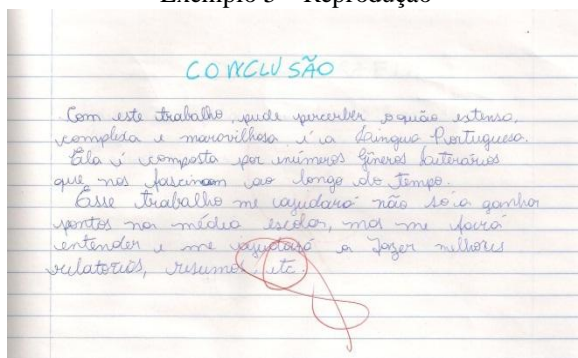 Exemplo 3 – Reprodução
CONCLUSÃO
Com este trabalho, pude perceber o quão extenso,
completa e maravilhosa é a Língua Portuguesa.
Ela é composta por inúmeros gêneros literários
que nos fascinam ao longo do tempo.
Esse trabalho me ajudará não só a ganhar
pontos na média escolar, mas me fará
entender e me ajudará a fazer melhores
relatórios, resumos, etc.